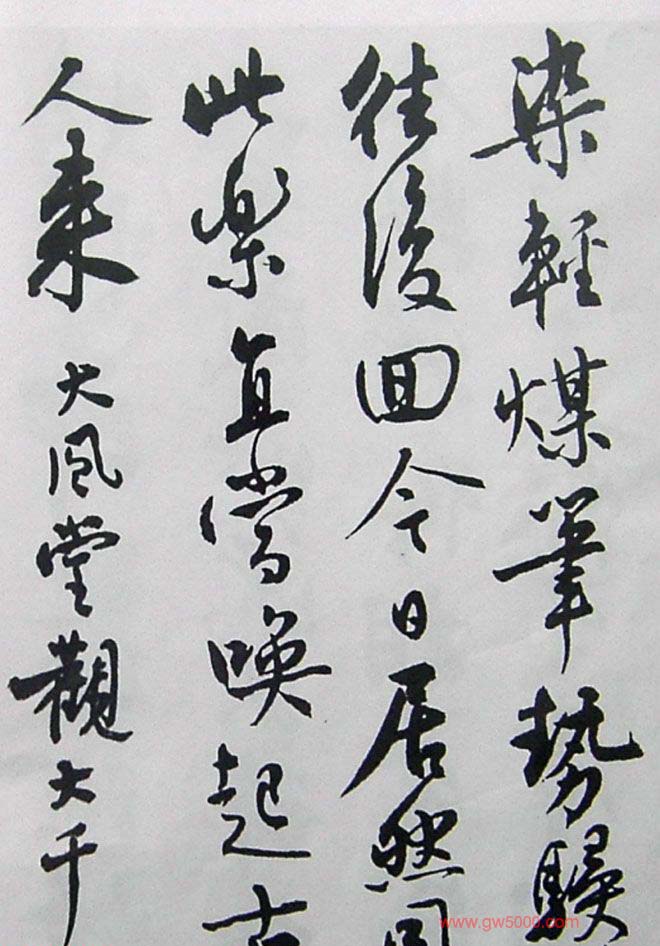 染輕煤筆勢
往後回今日居然同
此樂直當喚起古
人來 大風堂觀大千
www.gw5000.com